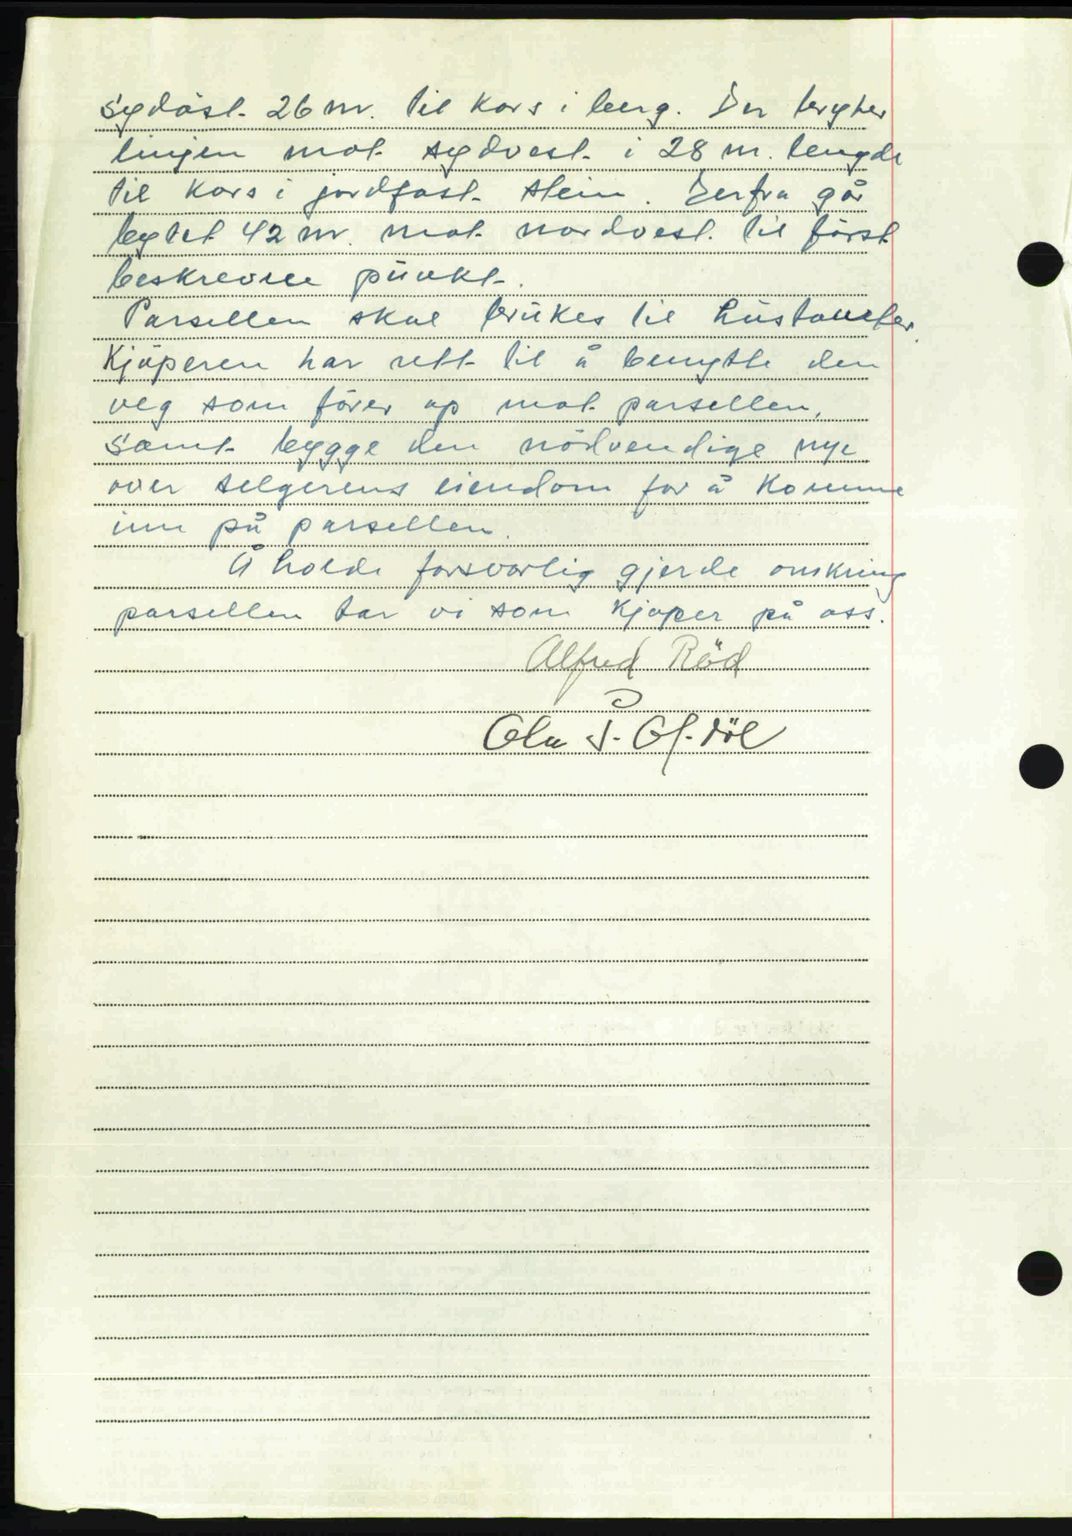 sydöst. 26 m. til kors i berg. Der bryter
linjen mot sydvest. i 28 m. lengde
til kors i jordfast. stein. Derfra går
bytet 42 m. mot nordvest. til först
beskrevne punkt.
Parsellen skal brukes til hustomter.
Kjöperen har rett til å benytte den
veg som förer op mot parsellen,
samt bygge den nödvendige nye
over selgerens eiendom for å komme
inn på parsellen.
Å holde forsvarlig gjerde omkring
parsellen tar vi som kjöper på oss.
Alfred Röd
Ola